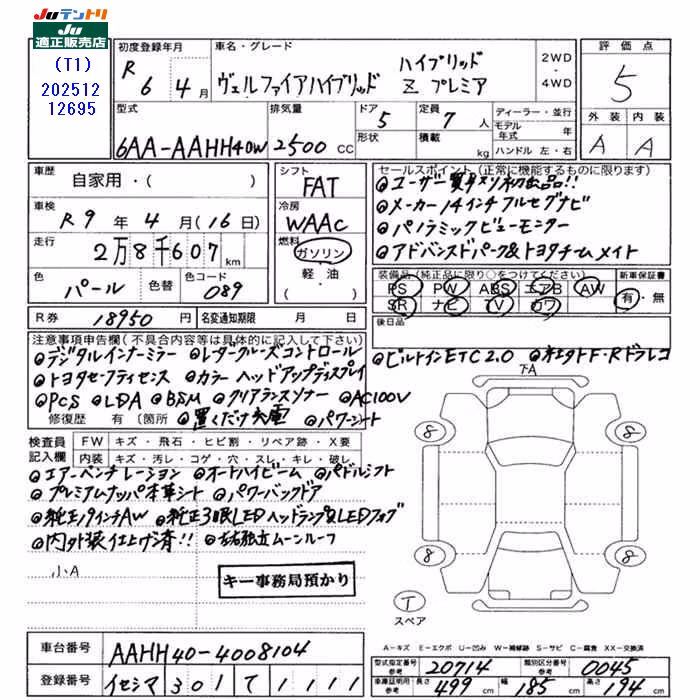 Juテントリ
Ju
適正販売店
(T1)
202512
12695
初度登録年月
R 6年 4月
車名・グレード
ハイブリッド
ヴェルファイアハイブリッド Z プレミア
2WD
・
4WD
評価点
5
外装 内装
A A
型式
6AA-AAHH40W
排気量
2500 CC
ドア
5
形状
定員
7 人
積載
kg
ディーラー・並行
モデル年式 年
ハンドル 左・右
車歴
自家用・( )
車検
R 9 年 4 月 (16 日)
走行
2万8千607 km
色
パール
色替
色コード
089
R券
18950 円
名変通知期限 月 日
シフト
FAT
冷房
WAAC
燃料
ガソリン
・
軽・油
( )
セールスポイント (正常に機能するものに限ります)
◎ユーザー買取り初出品!!
◎メーカー14インチフルセグナビ
◎パノラミックビューモニター
◎アドバンスドパーク&トヨタチームメイト
装備品(純正品に限り○をつけてください)
PS PW ABS エアB AW
SR ナビ TV カワ
新車保証書
有・無
後日品
◎ビルトインETC2.0 ◎社外F・Rドラレコ
注意事項申告欄(不具合内容等は具体的に記入して下さい)
◎デジタルインナーミラー ◎レーダークルーズコントロール
◎トヨタセーフティセンス ◎カラーヘッドアップディスプレイ
◎PCS ◎LDA ◎BSM ◎クリアランスソナー ◎AC100V
修復歴 有 (箇所 ◎置くだけ充電 ◎パワーシート
検査員記入欄
FW キズ・飛石・ヒビ割・リペア跡・X要
内装 キズ・汚レ・コゲ・穴・スレ・キレ・破レ
◎エアーベンチレーション ◎オートハイビーム ◎パドルシフト
◎プレミアムナッパ本革シート ◎パワーバックドア
◎純正19インチAW ◎純正3眼LEDヘッドランプ&LEDフォグ
◎内外装仕上げ済!! ◎左右独立ムーンルーフ
小A
キー事務局預かり
下A
8 8
8 8
T
スペア
A−キズ E−エクボ U−凹み W−補修跡 S−サビ C−腐食 XX−交換済
車台番号
AAHH40-4008104
登録番号
イセシマ 301 て 1111
型式指定番号
参考
20714
類別区分番号
参考
0045
車庫証明用
参考
長さ 499 cm 幅 185 cm 高さ 194 cm